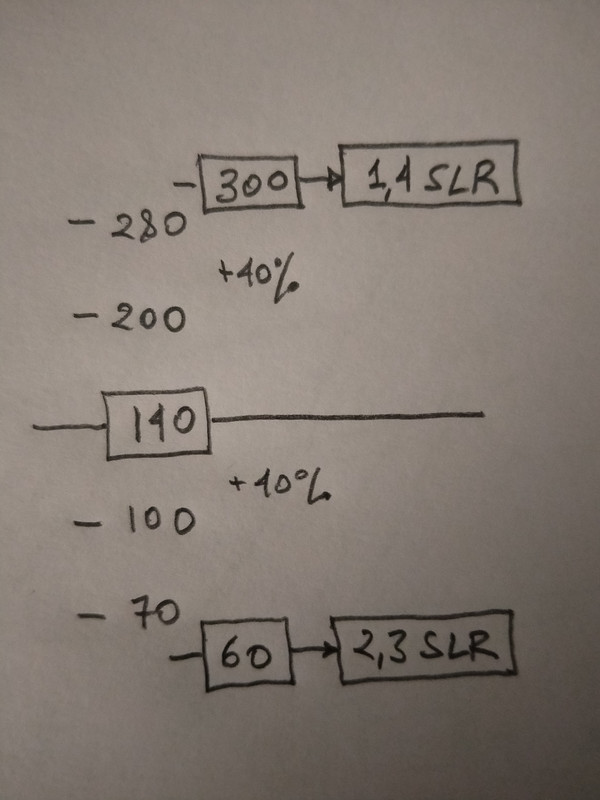 - 300 → 1,4 SLR
- 280
+40%
- 200
140
+40%
- 100
- 70
- 60 → 2,3 SLR